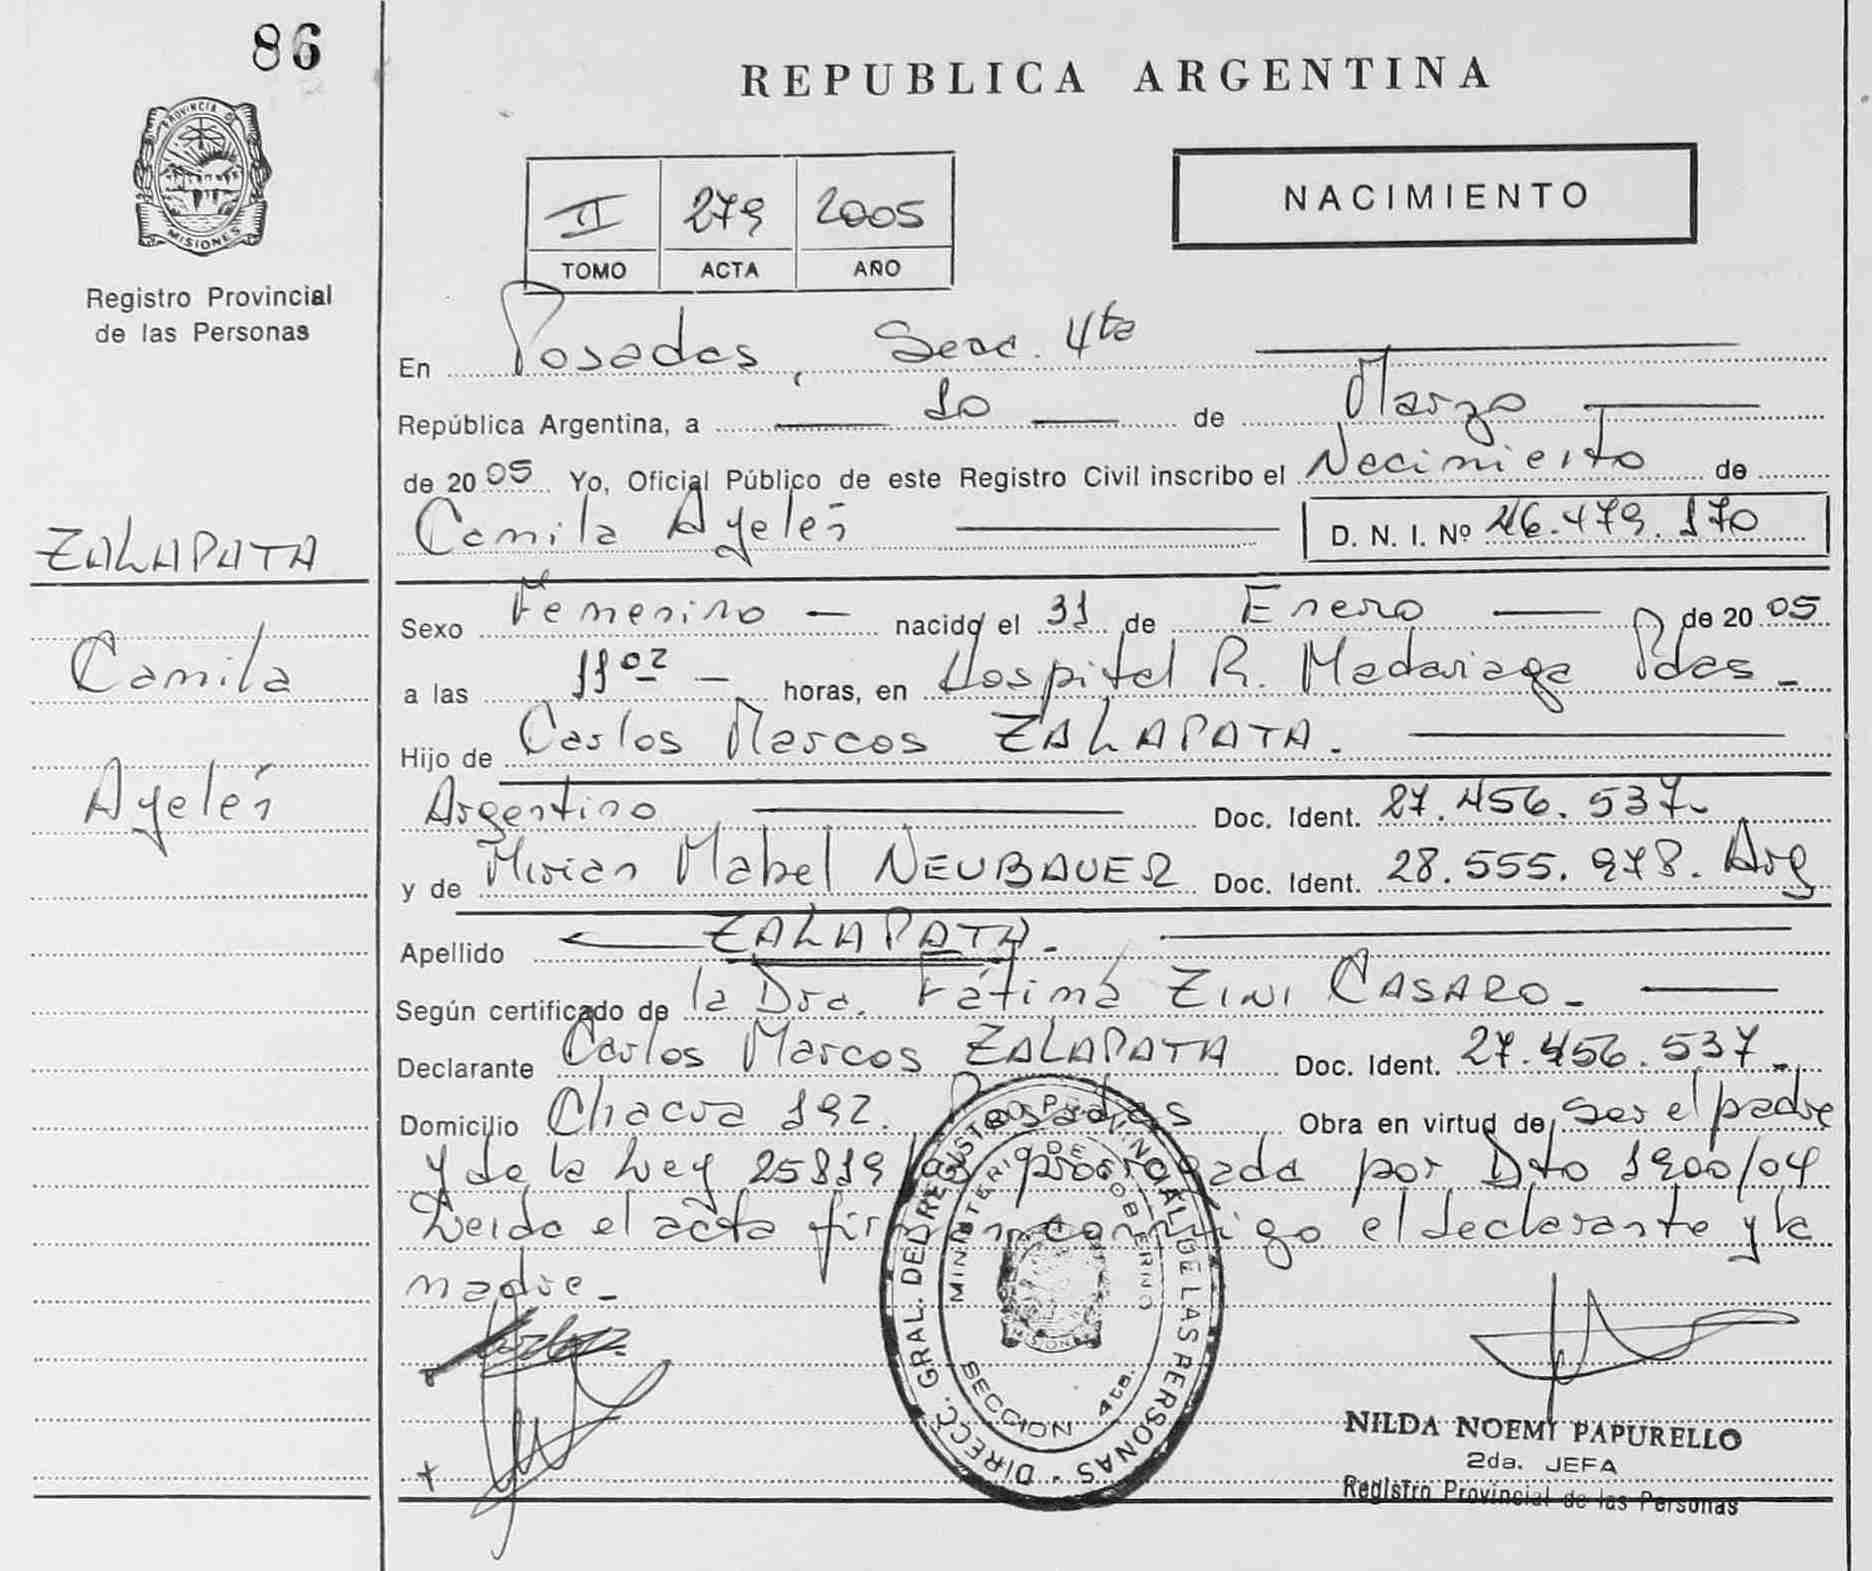 86
PROVINCIA DE
MISIONES
Registro Provincial
de las Personas
REPUBLICA ARGENTINA
NACIMIENTO
II 279 2005
TOMO ACTA AÑO
En Posadas, Secc. 4ta
República Argentina, a 10 de Marzo
de 2005 Yo, Oficial Público de este Registro Civil inscribo el Nacimiento de
Camila Ayelén D. N. I. Nº 46.479.170
ZALAPATA
Camila
Ayelén
Sexo Femenino — nacido el 31 de Enero de 2005
a las 11 02 — horas, en Hospital R. Madariaga Pdas -
Hijo de Carlos Marcos ZALAPATA.
Argentino Doc. Ident. 27.456.537.
y de Mirian Mabel NEUBAUER Doc. Ident. 28.555.978. Arg
Apellido ZALAPATA.
Según certificado de la Dra. Fátima ZINI CASARO.
Declarante Carlos Marcos ZALAPATA Doc. Ident. 27.456.537.
Domicilio Chacra 192. Posadas Obra en virtud de ser el padre
y de la Ley 25819 prorrogada por Dto 1900/04
Leida el acta firman conmigo el declarante y la
madre.
DIRECC. GRAL. DEL REGISTRO PROVINCIAL DE LAS PERSONAS
MINISTERIO DE GOBIERNO
SECCION 4ta.
MISIONES
NILDA NOEMI PAPURELLO
2da. JEFA
Registro Provincial de las Personas